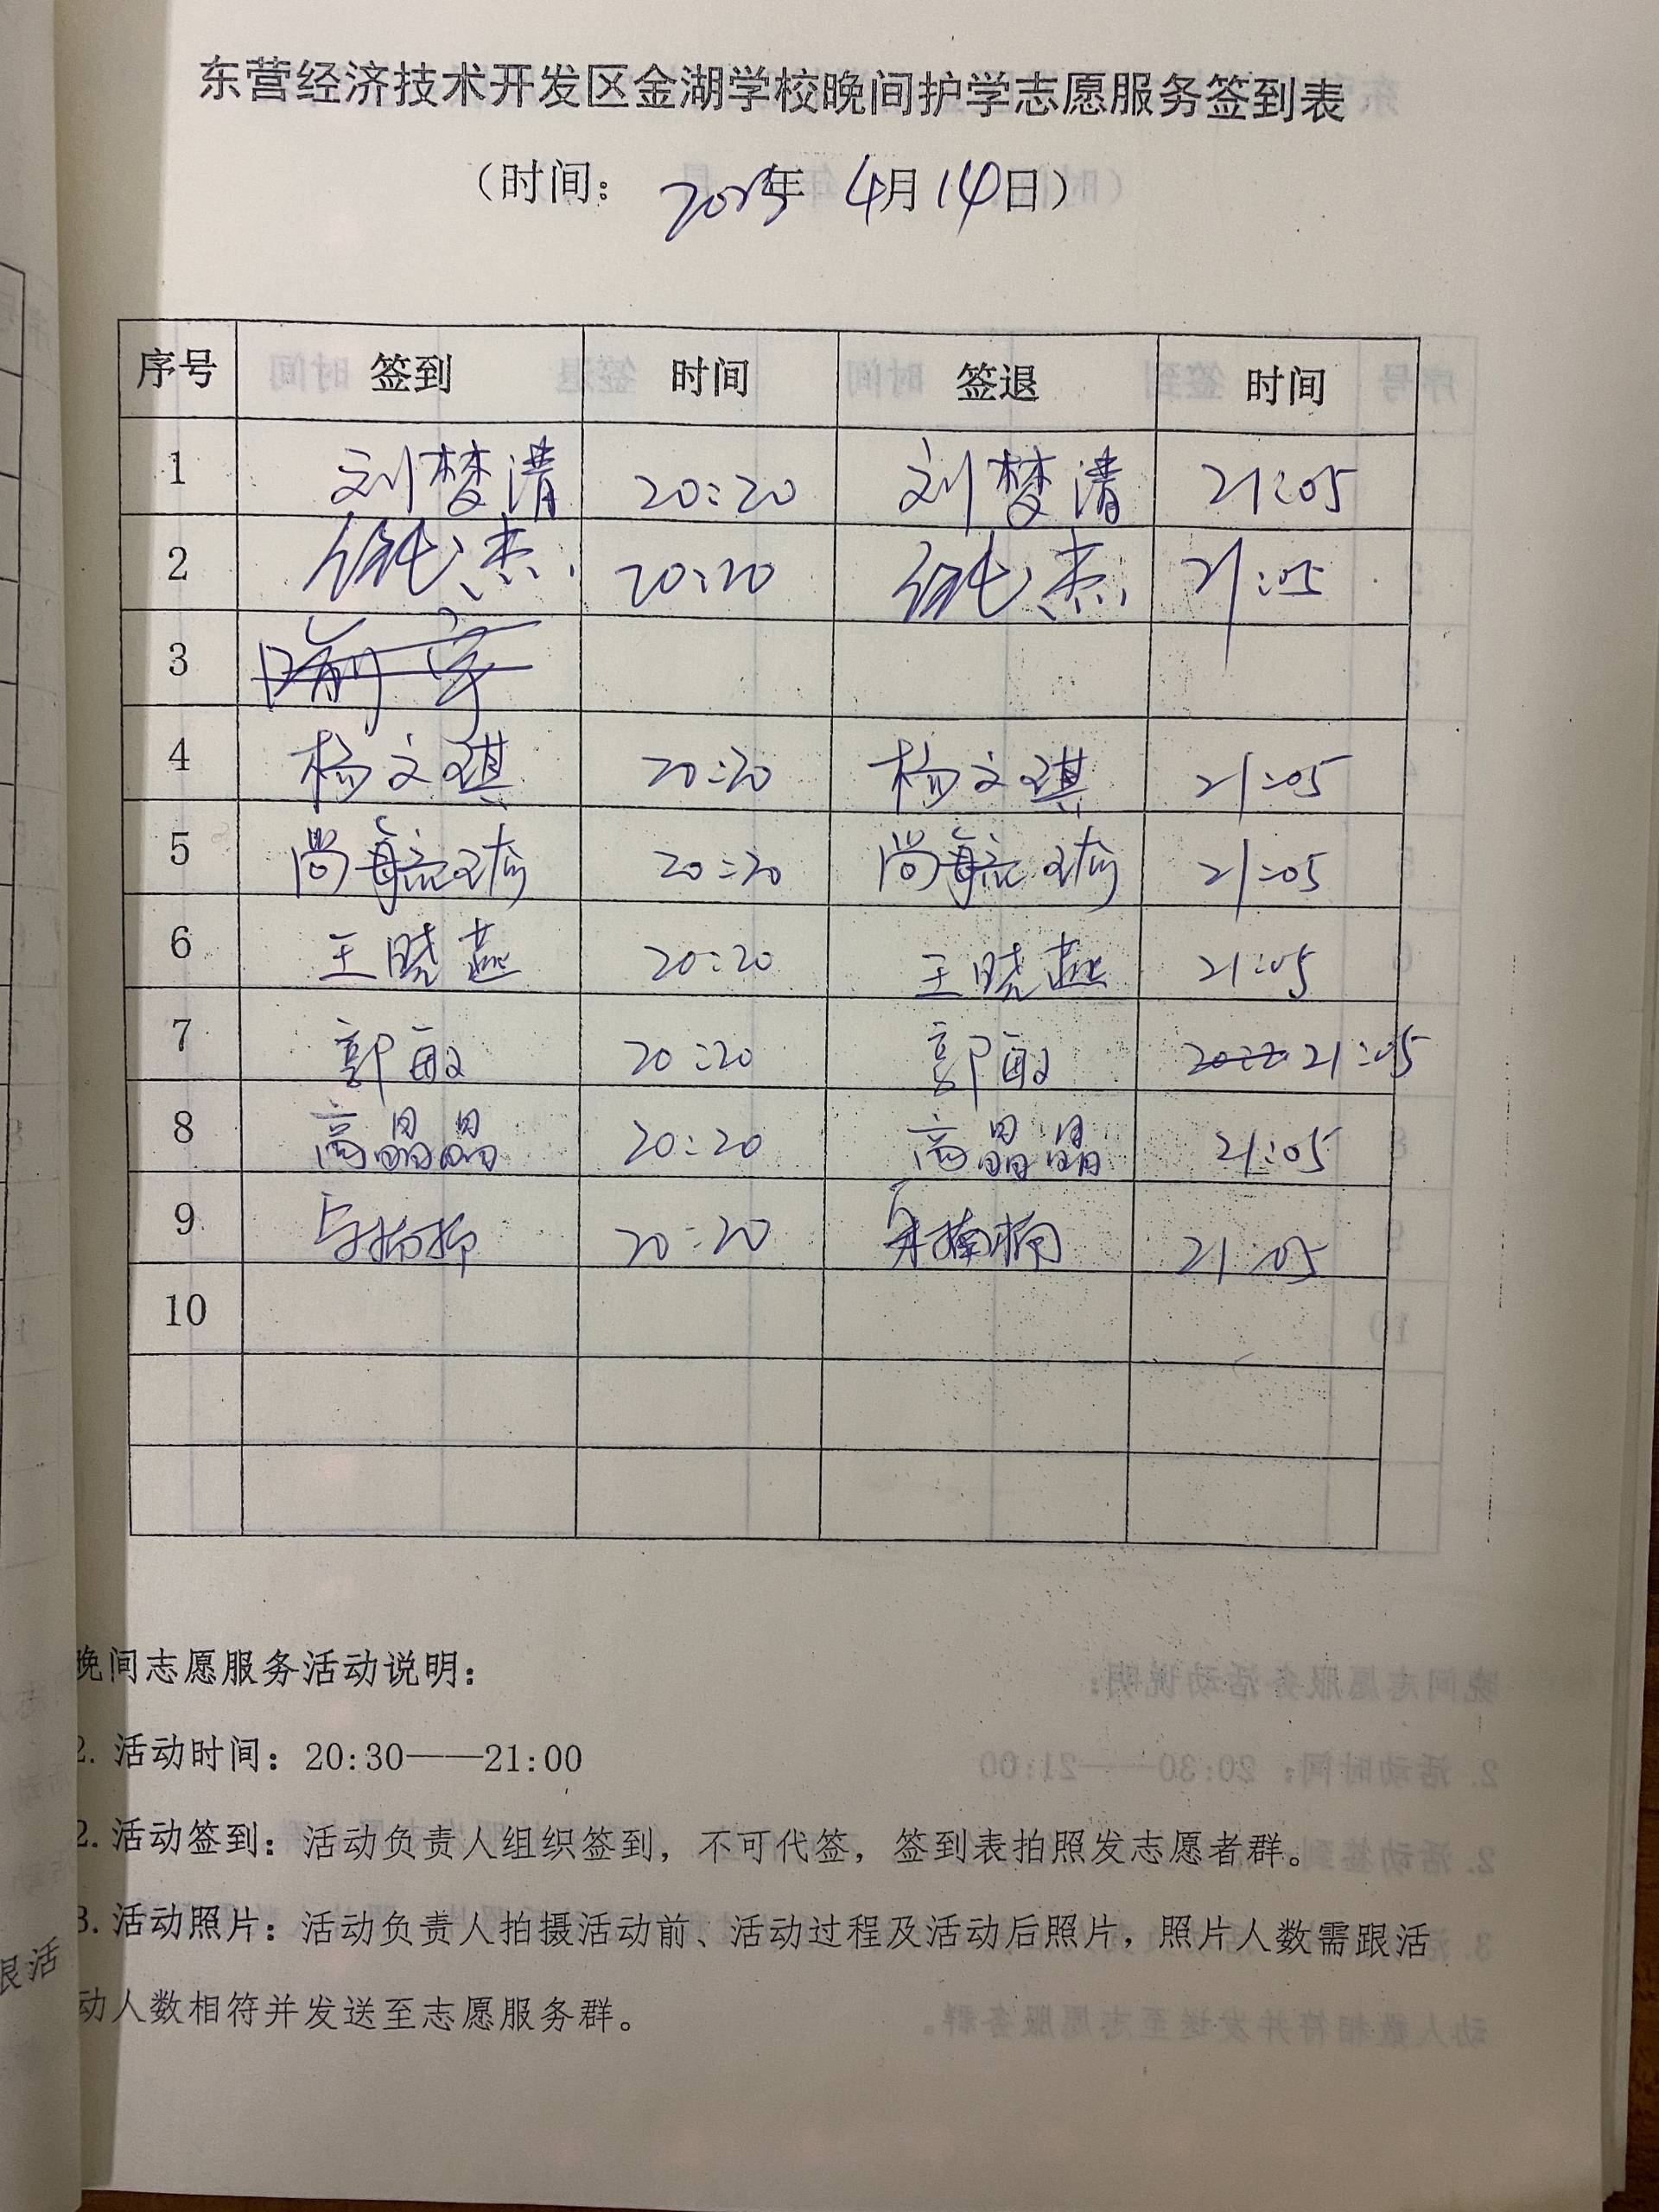 东营经济技术开发区金湖学校晚间护学志愿服务签到表
（时间： 2025年 4月14日）
序号 签到 时间 签退 时间
1 刘梦清 20:20 刘梦清 21:05
2 20:20 21:05
3
4 杨文琪 20:20 杨文琪 21:05
5 20:20 21:05
6 王晓燕 20:20 王晓燕 21:05
7 郭敏 20:20 郭敏 21:05
8 高晶晶 20:20 高晶晶 21:05
9 20:20 21:05
10
晚间志愿服务活动说明：
2. 活动时间：20:30——21:00
2. 活动签到：活动负责人组织签到，不可代签，签到表拍照发志愿者群。
3. 活动照片：活动负责人拍摄活动前、活动过程及活动后照片，照片人数需跟活
动人数相符并发送至志愿服务群。